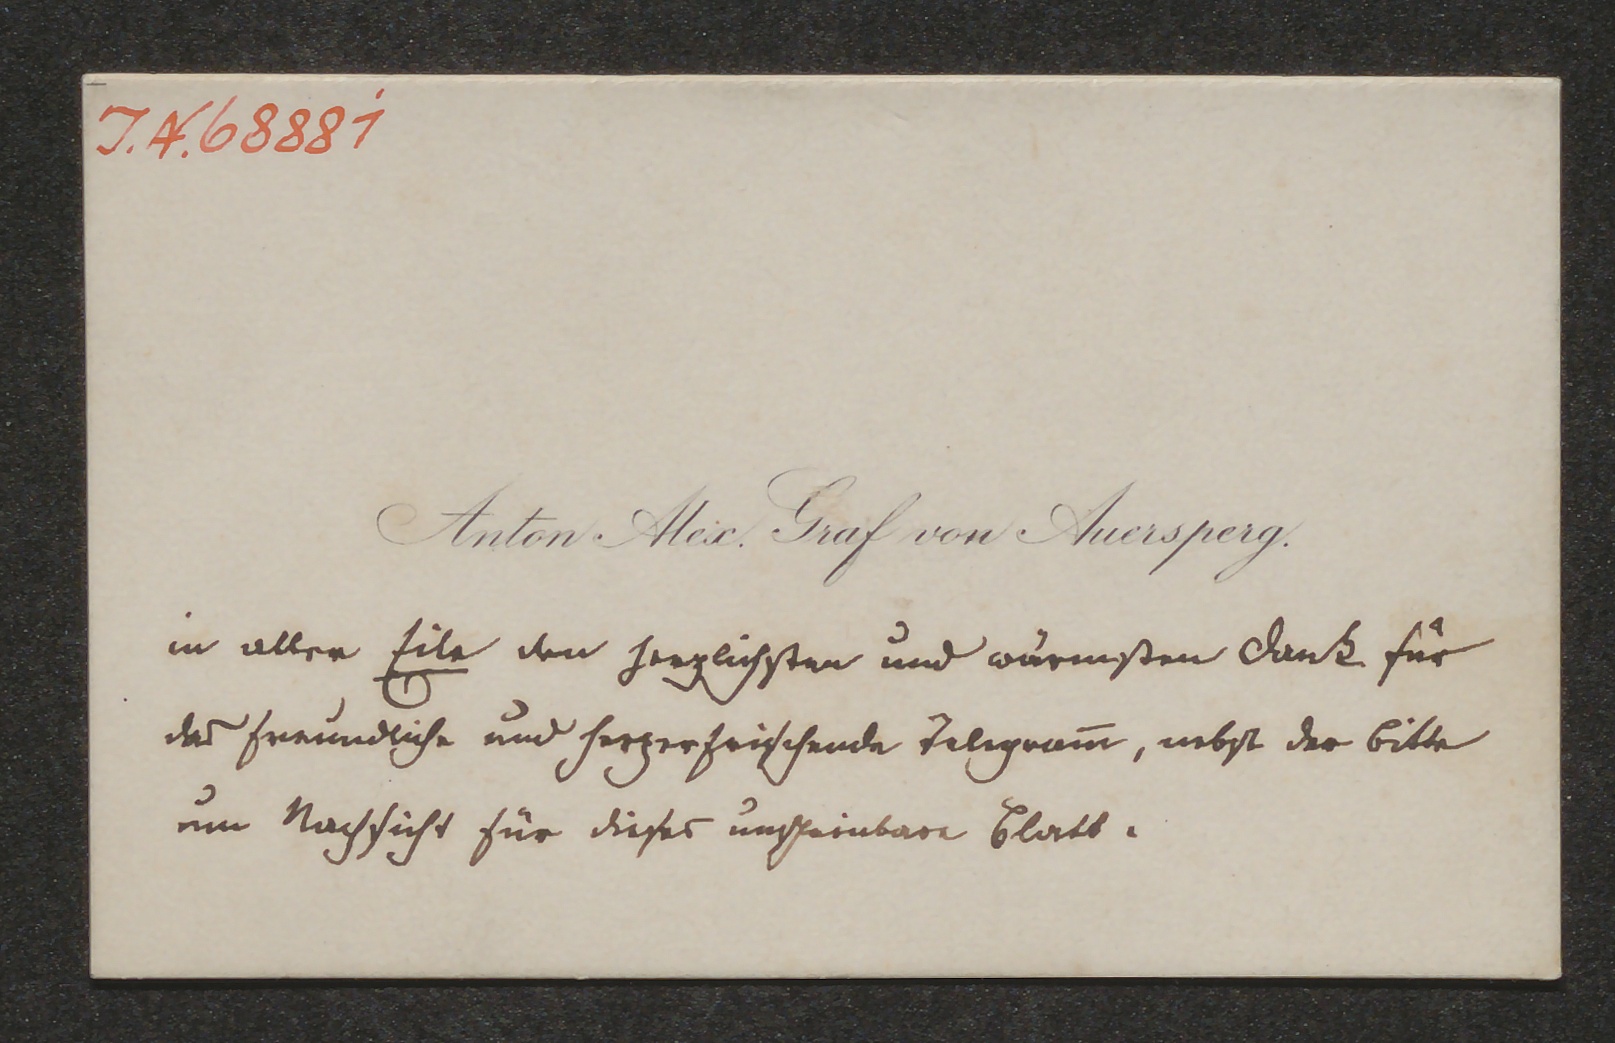 I.N. 68881
Anton Alex. Graf von Auersperg.
in aller Eile den herzlichsten und wärmsten Dank für
das freundliche und herzerfrischende Telegram̅, nebst der Bitte
um Nachsicht für dieses unscheinbare Blatt.